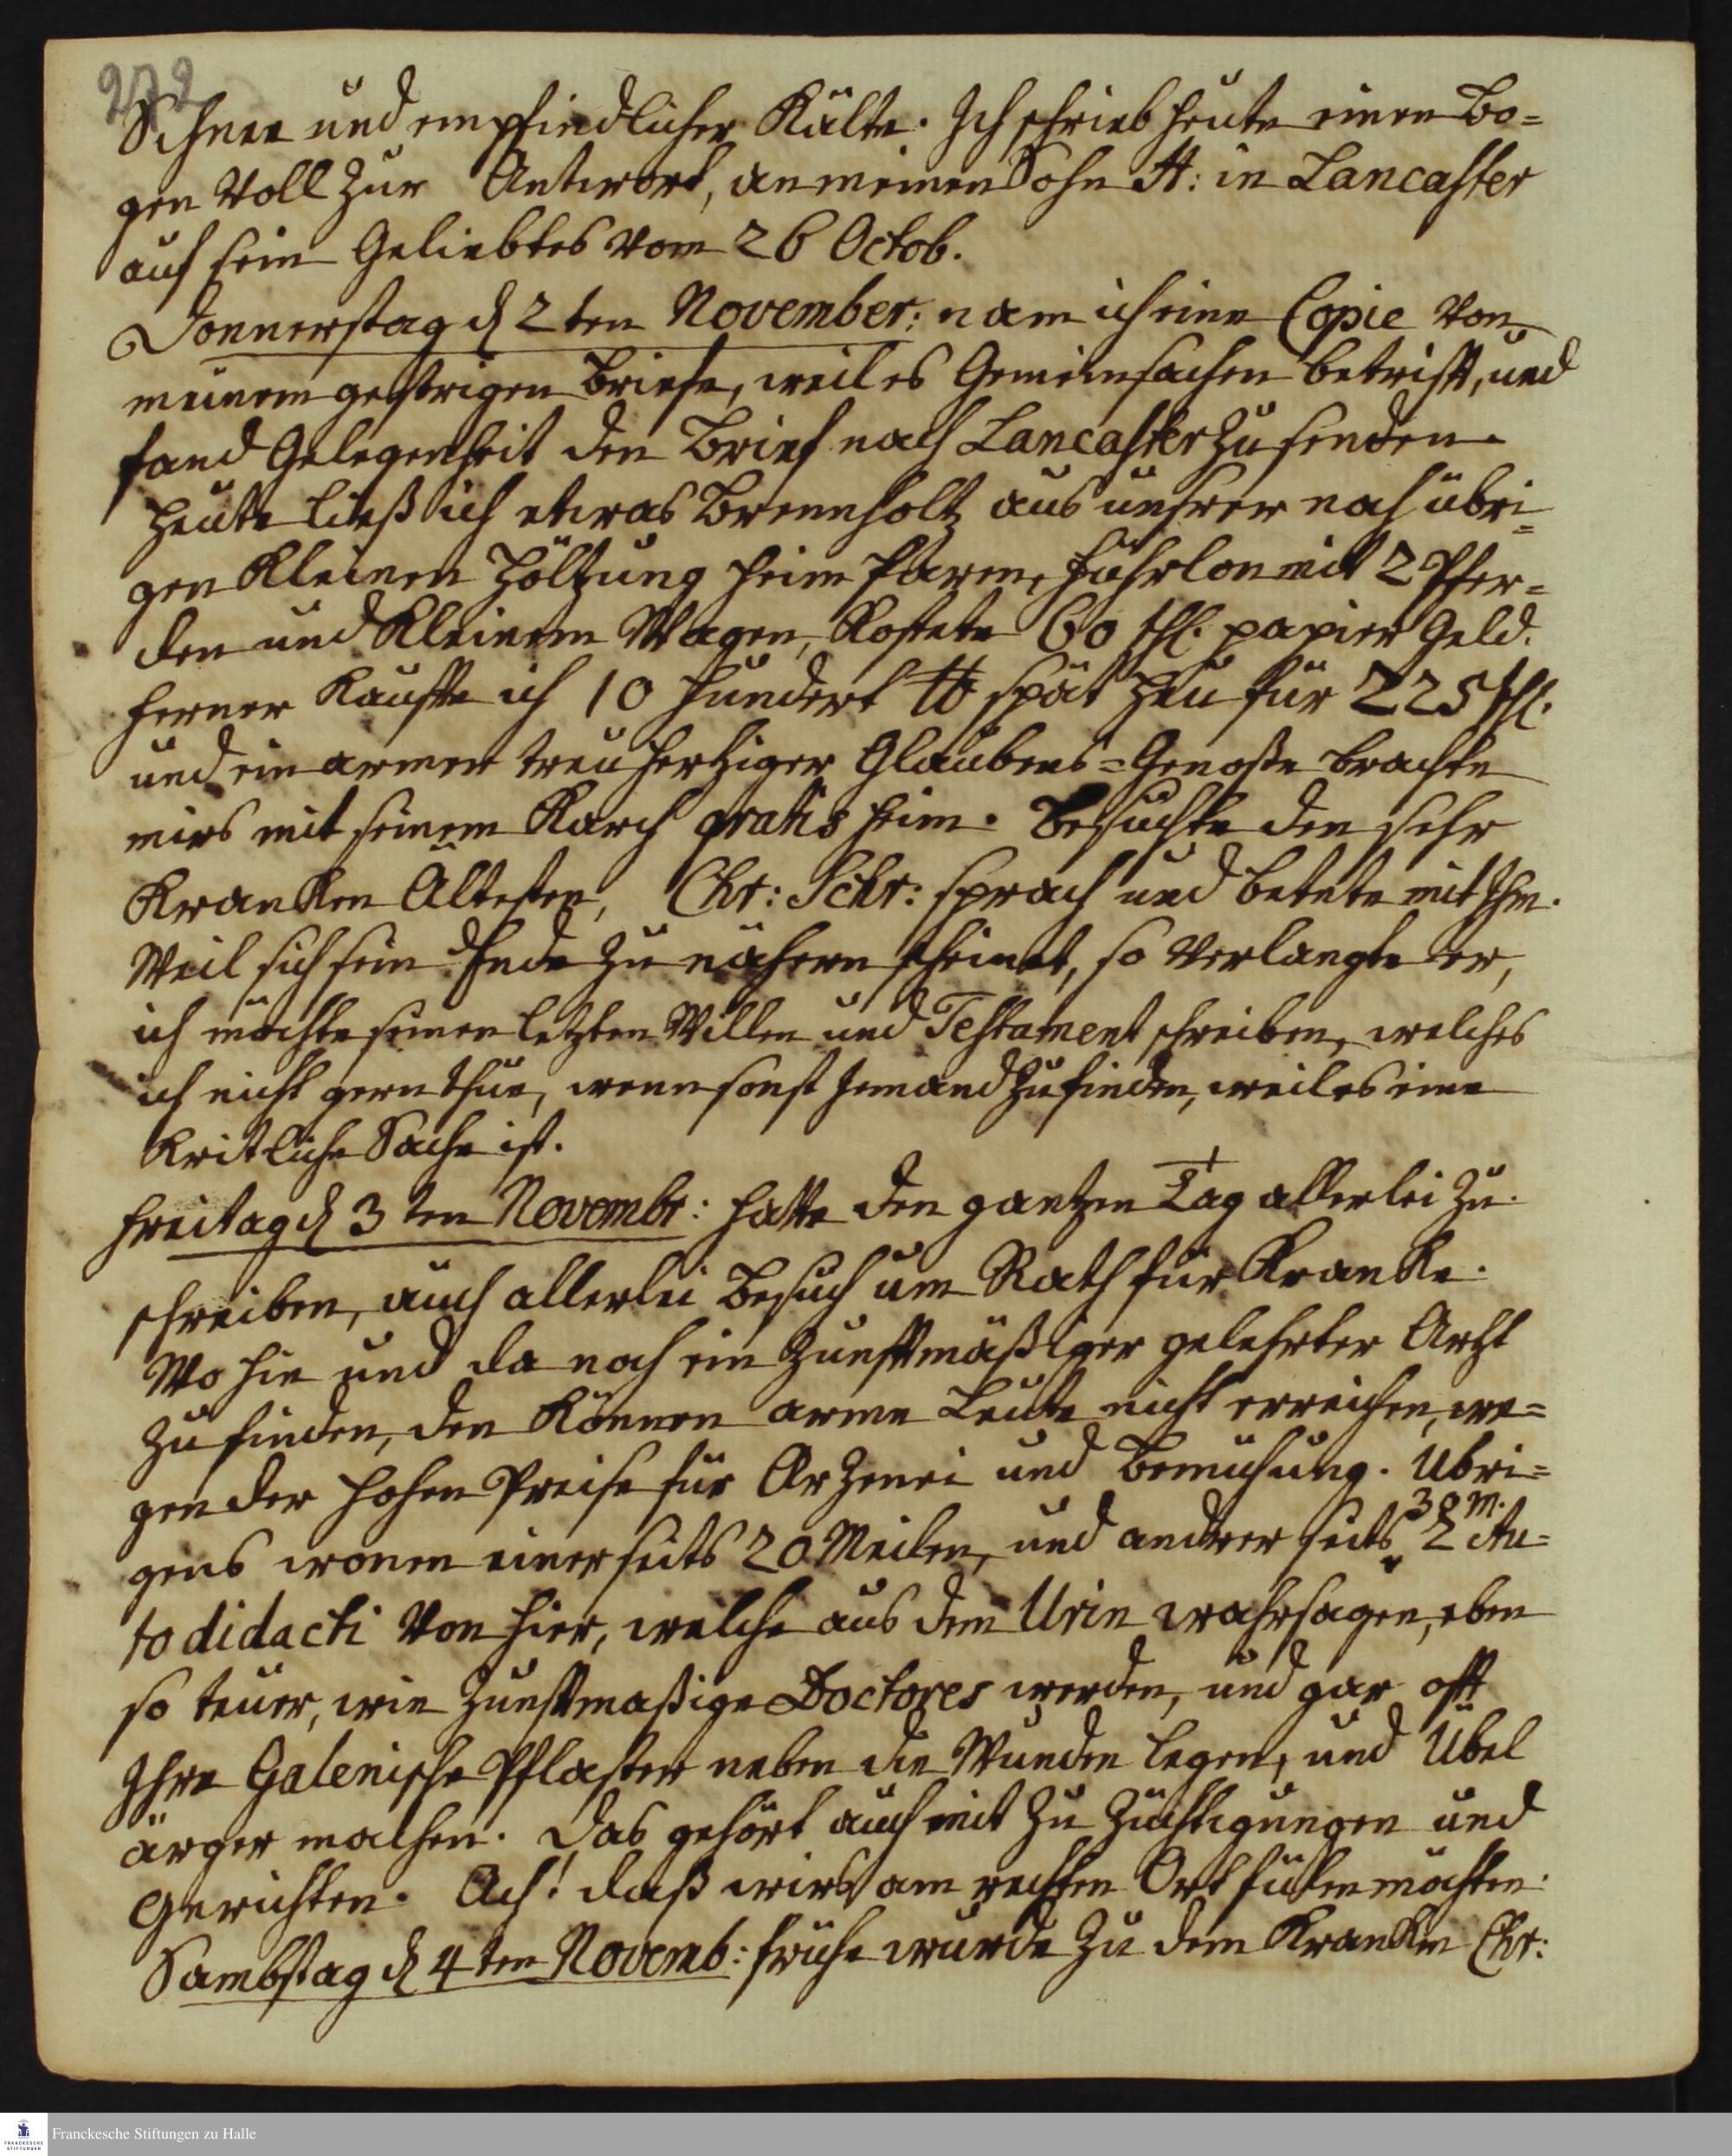 272
Schnee und empfindlicher Kälte. Ich schrieb heute einen Bo=
gen voll zur Antwort, an meinen Sohn H: in Lancaster
auf sein Geliebtes vom 26 Octob.
Donnerstag d 2ten November: nam ich eine Copie von
meinem gestrigen Briefe, weil es Gemeinsachen betrifft, und
fand Gelegenheit den Brief nach Lancaster zu senden.
Heute ließ ich etwas Brennholtz aus unsrer noch übri=
gen kleinen Höltzung heim faren, Fuhrlon mit 2 Pfer=
den und kleinem Wagen, kostete 60 shl. papier Geld.
Ferner kauffte ich 10 hundert ℔ spät Heu für 225 shl.
und ein armer treuhertziger Glaubens=Genoße brachte
mirs mit seinem Karch gratis heim. Besuchte den sehr
kranken Ältesten, Chr: Schr: sprach und betete mit Ihm.
Weil sich sein Ende zu nähern scheinet, so verlangte er,
ich möchte seinen letzten Willen und Testament schreiben, welches
ich nicht gern thue, wenn sonst Jemand zu finden, weil es eine
kritliche Sache ist.
Freitag d 3ten Novembr: hatte den gantzen Tag allerlei zu
schreiben, auch allerlei Besuch um Rath für Kranke.
Wo hie und da noch ein zunfftmäßiger gelehrter Artzt
zu finden, den können arme Leute nicht erreichen, we=
gen der hohen Preise für Arzenei und Bemühung. Ubri=
gens wonen einerseits 20 Meilen, und andrer seits 38 m. 2 Au=
todidacti von hier, welche aus dem Urin wahrsagen, eben
so teuer, wie zunfftmaßige Doctores werden, und gar offt
Ihre Galenische Pflaster neben die Wunden legen, und Übel
ärger machen. Das gehört auch mit zu Züchtigungen und
Gerichten. Ach! daß wirs am rechten Ort fülen möchten.
Sambstag d 4ten Novemb: frühe wurde zu dem Kranken Chr:
Franckesche Stiftungen zu Halle